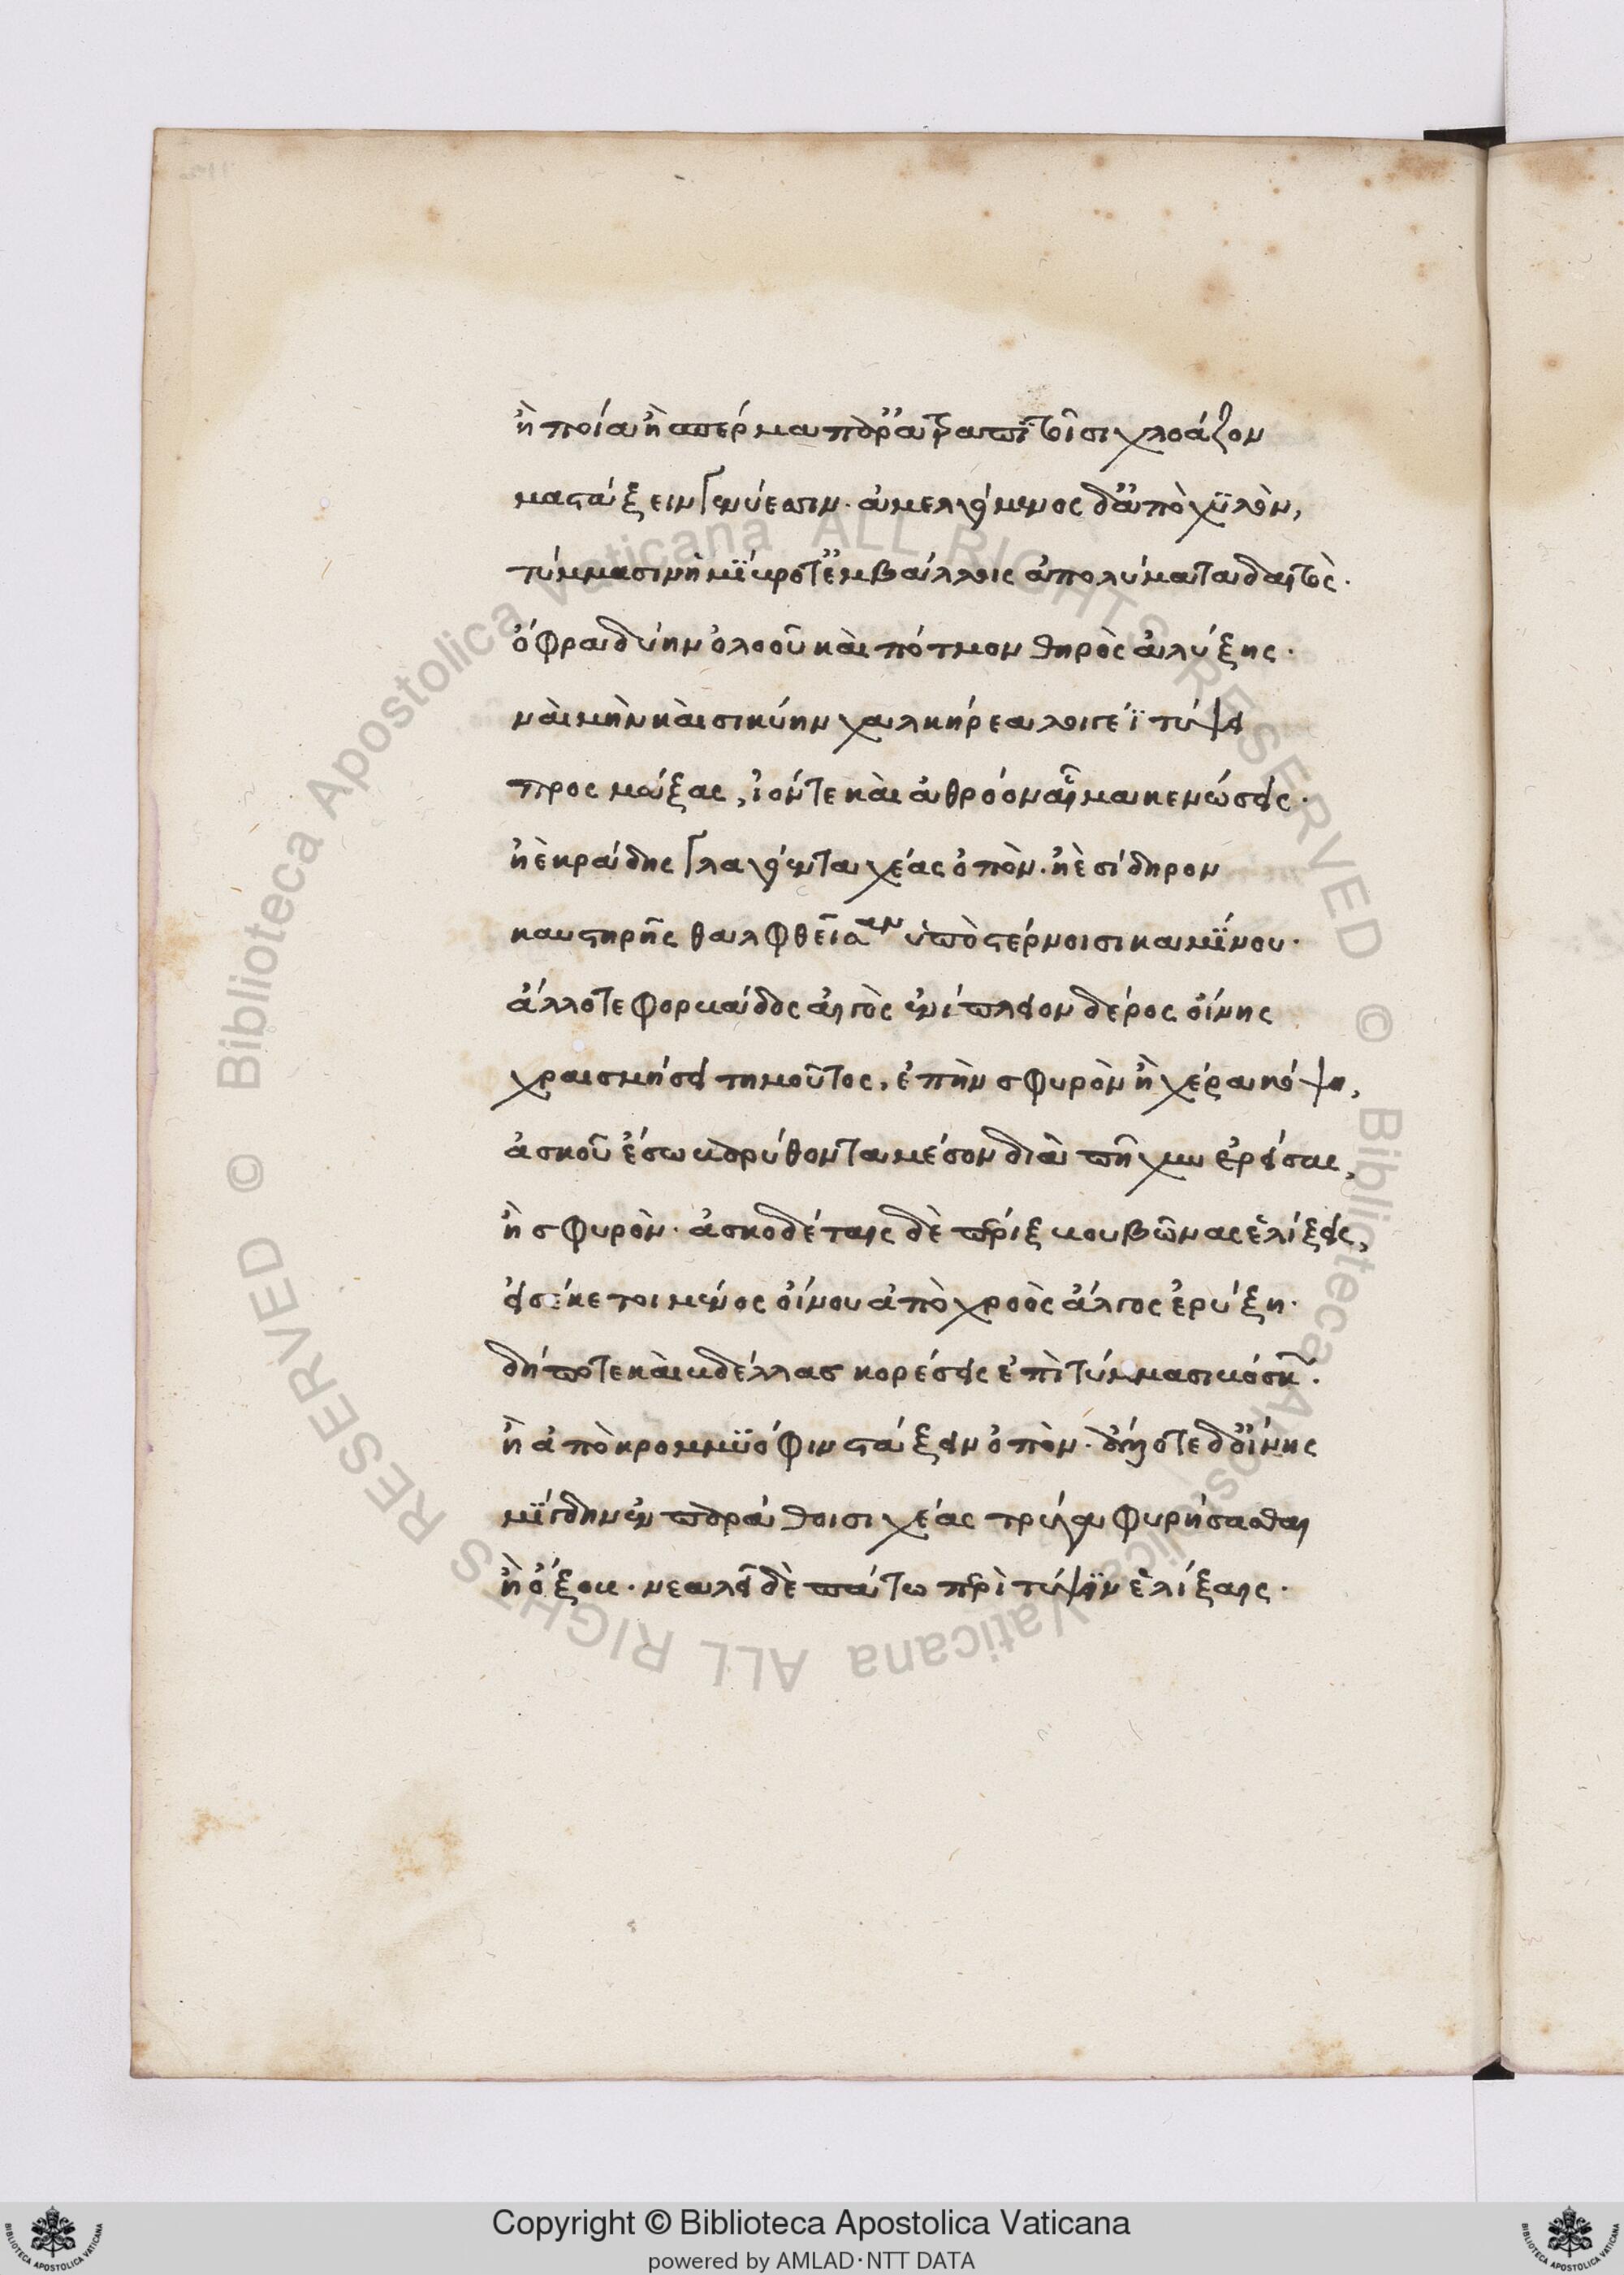 ἢ ποίαν ἢ σπέρμα παρ' ἀτραπιτοῖσι χλοάζον
μαστάζειν γενύεσσιν. ἀμελγόμενος δ' ἀπὸ χϋλὸν,
τύμμασιν ἡμΐβροτ' ἐμβάλλοις ἀπολύματα δαιτὸς.
ὄφρα δύην ὀλοοῦ καὶ πότμον θηρὸς ἀλύξης.
ναὶ μὴν καὶ σικύην χαλκήρεα λοιγέϊ τύψει
προσμάξας, ἰόν τε καὶ ἀθρόον αἷμα κενώσεις.
ἠὲ κράδης γλαγόεντα χέας ὀπὸν. ἠὲ σίδηρον
καυστηρῆς θαλφθεῖσαν ὑπὸ στέρνοισι καμΐνου.
ἄλλοτε φορβάδος αἰγὸς ἐνίπλειον δέρος οἴνης
χραισμήσει τημοῦτος, ἐπὴν σφυρὸν ἢ χέρα κόψη,
ἀσκοῦ ἔσω βαρύθοντα μέσον διὰ πῆχυν ἐρείσας,
ἢ σφυρὸν. ἀσκοδέταις δὲ πέριξ βουβῶνας ἑλίξεις,
εἰσόκε τοι μένος οἴνου ἀπὸ χροὸς ἄλγος ἐρύξη.
δήποτε καὶ βδέλλας κορέσεις ἐπὶ τύμμασι βόσκων.
ἢ ἀπὸ κρομμϋόφιν στάξειν ὀπὸν. δὴ ὅτε δ' οἴνης
μΐγδην ἐν σπυράθοισι χέας τρύγα φυρήσασθαι
ἢ ὄξου. νεαλεῖ δὲ πάτω περὶ τύψϊν ἑλίξαις.
Copyright © Biblioteca Apostolica Vaticana
powered by AMLAD·NTT DATA